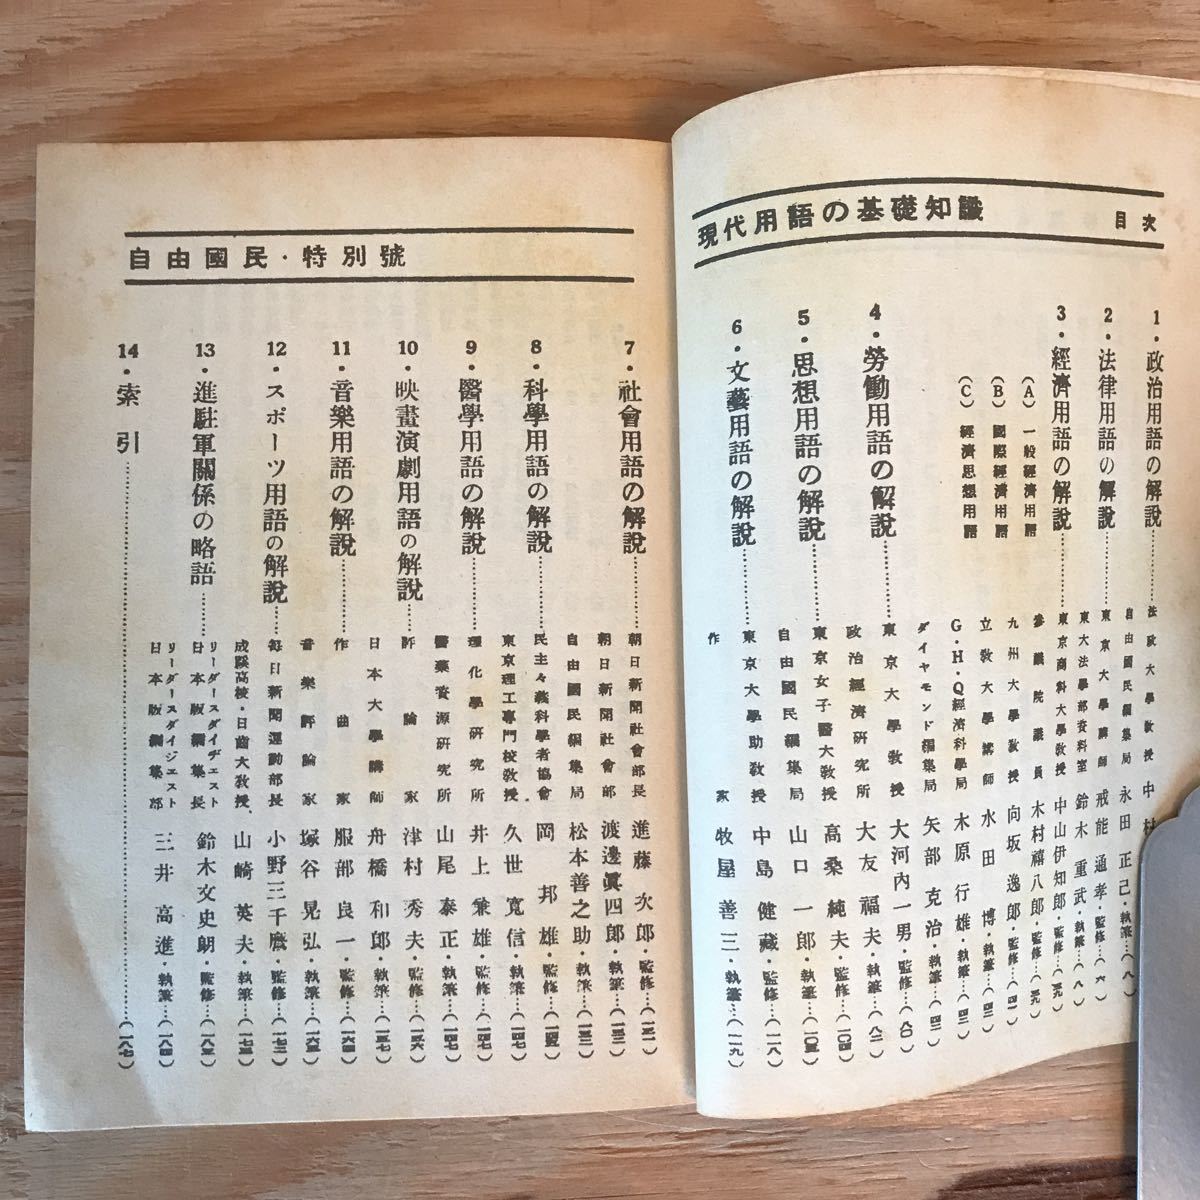 現代用語の基礎知識 目次
1・政治用語の解説……法政大學敎授 中村
自由國民編集局 永田正己・執筆…(八)
2・法律用語の解説……東京大學講師 戒能通孝・監修…(六)
東大法學部資料室 鈴木重武・執筆…(八)
3・經濟用語の解説……東京商科大學敎授 中山伊知郎・監修…(二九)
(A)一般經濟用語 參議院議員 木村禧八郎・執筆…(二九)
(B)國際經濟用語 九州大學敎授 向坂逸郎・監修…(四一)
(C)經濟思想用語 立敎大學講師 水田博・執筆…(四二)
G・H・Q經濟科學局 木原行雄・執筆…(四三)
ダイヤモンド編集局 矢部克治・執筆…(四三)
4・勞働用語の解説……東京大學敎授 大河內一男・監修…(八〇)
政治經濟硏究所 大友福夫・執筆…(八二)
5・思想用語の解説……東京女子醫大敎授 高桑純夫・監修…(一〇四)
自由國民編集局 山口一郎・執筆…(一〇五)
6・文藝用語の解説……東京大學助敎授 中島健藏・監修…(一一八)
作家 牧屋善三・執筆…(一一九)
自由國民・特別號
7・社會用語の解說……朝日新聞社會部長 進藤次郎・監修…(一五一)
朝日新聞社會部 渡邊眞四郎・執筆…(一五二)
自由國民編集局 松本善之助・執筆…(一五二)
8・科學用語の解說……民主々義科學者協會 岡邦雄・監修…(一四五)
東京理工專門校敎授 久世寬信・執筆…(一四七)
9・醫學用語の解說……理化學硏究所 井上兼雄・監修…(一四七)
醫藥資源硏究所 山尾泰正・執筆…(一四七)
10・映畫演劇用語の解說……評論家 津村秀夫・監修…(一五六)
日本大學講師 舟橋和郎・執筆…(一五七)
11・音樂用語の解說……作曲家 服部良一・監修…(一六四)
音樂評論家 塚谷晃弘・執筆…(一六五)
12・スポーツ用語の解說……每日新聞運動部長 小野三千麿・監修…(一七二)
成蹊高校・日齒大敎授 山崎英夫・執筆…(一七三)
13・進駐軍關係の略語……リーダースダイヂェスト日本版編集長 鈴木文史朗・監修…(一八三)
リーダースダイジェスト日本版編集部 三井高進・執筆…(一八四)
14・索引……(一八七)